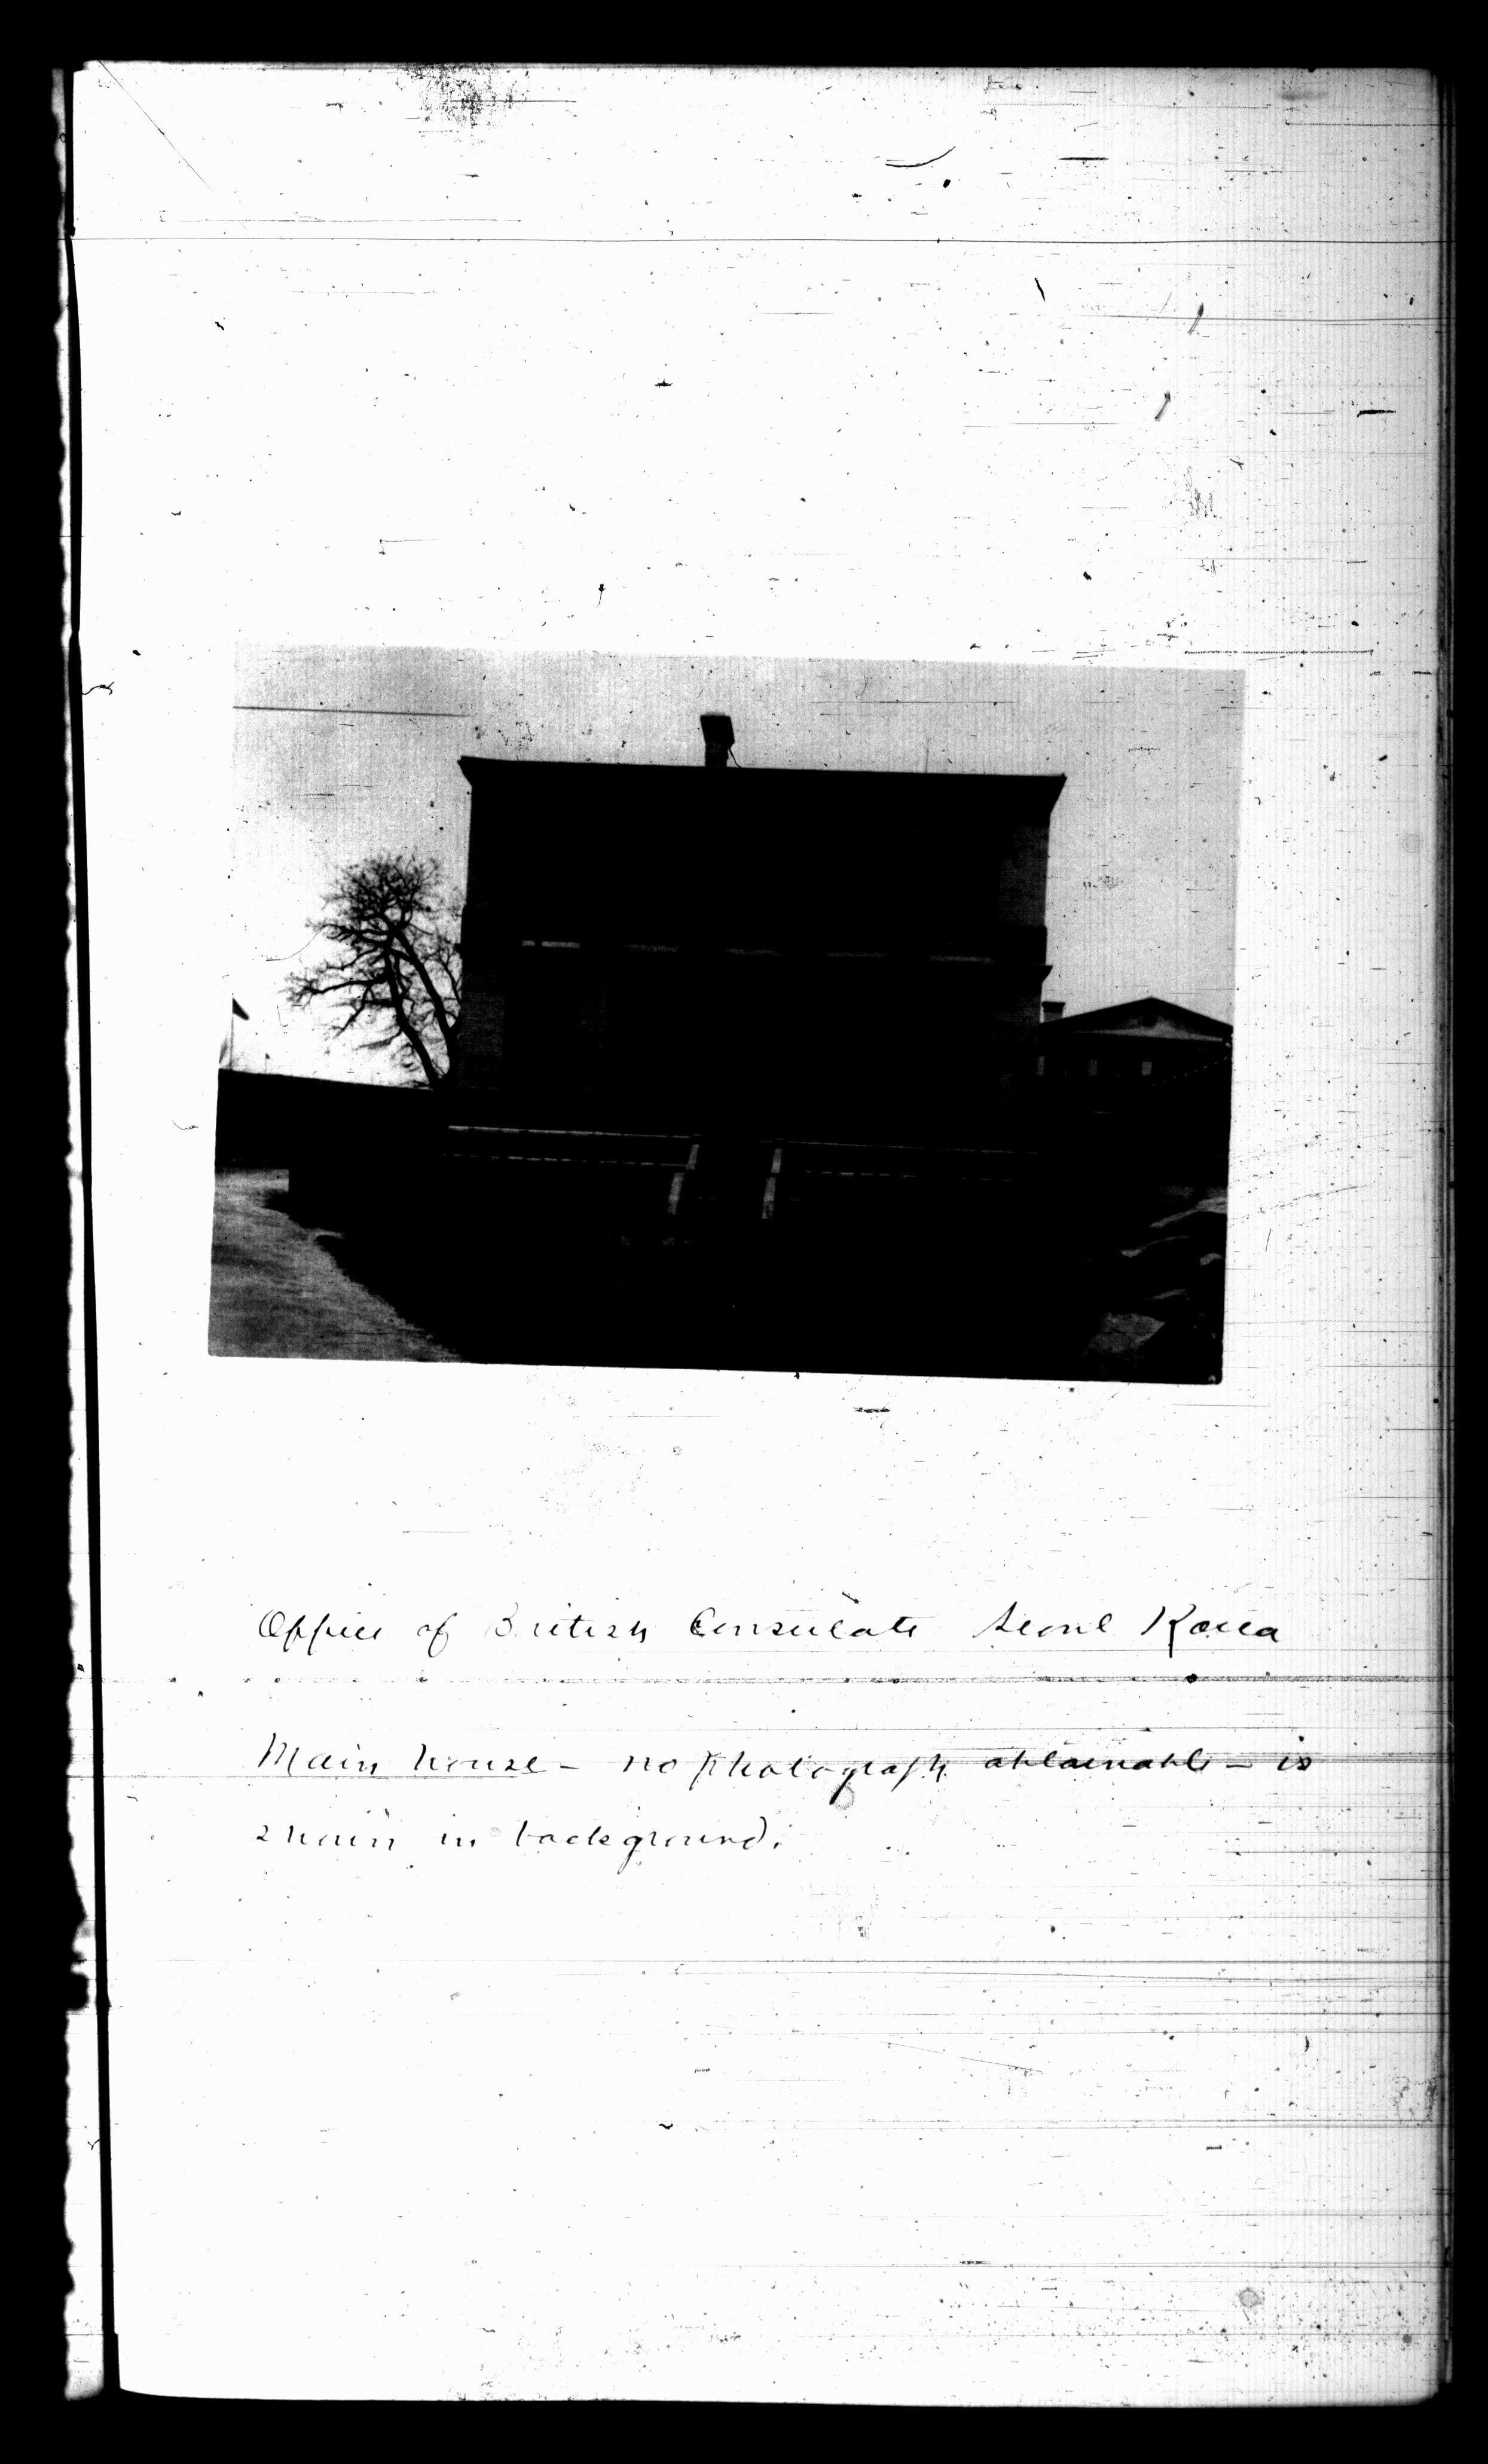 Office of British Consulate Seoul Korea
Main house - no photograph obtainable - is
shown in background.